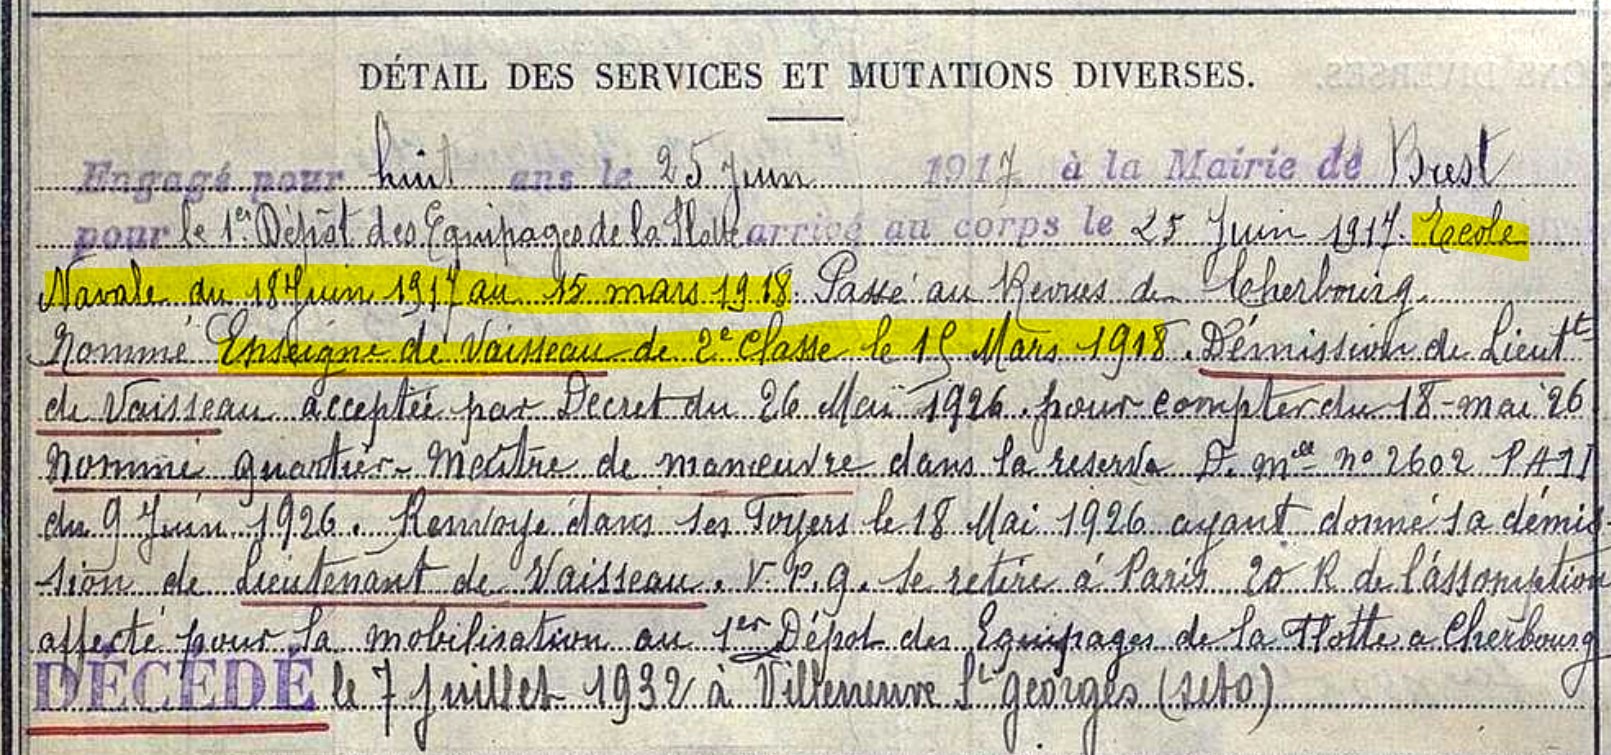 DÉTAIL DES SERVICES ET MUTATIONS DIVERSES.
Engagé pour huit ans le 25 Juin 1917 à la Mairie de Brest
pour le 1er Dépôt des Equipages de la Flotte arrivé au corps le 25 Juin 1917. Ecole
Navale du 18 Juin 1917 au 15 mars 1918. Passé au Revues de Cherbourg.
Nommé Enseigne de Vaisseau de 2e Classe le 15 Mars 1918. Démission de Lieutt
de Vaisseau acceptée par Décret du 26 Mai 1926. pour compter du 18-mai 26
Nommé quartier-Maître de manœuvre dans la reserve D. mlle no 2602 PA
du 9 Juin 1926. Renvoyé dans ses Foyers le 18 Mai 1926 ayant donné sa démis-
sion de Lieutenant de Vaisseau. V.P.g. se retire à Paris 20 R de l'assomption
affecté pour la mobilisation au 1er Dépot des Equipages de la Flotte a Cherbourg
DÉCÉDÉ le 7 Juillet 1932 à Villeneuve St georges (seto)